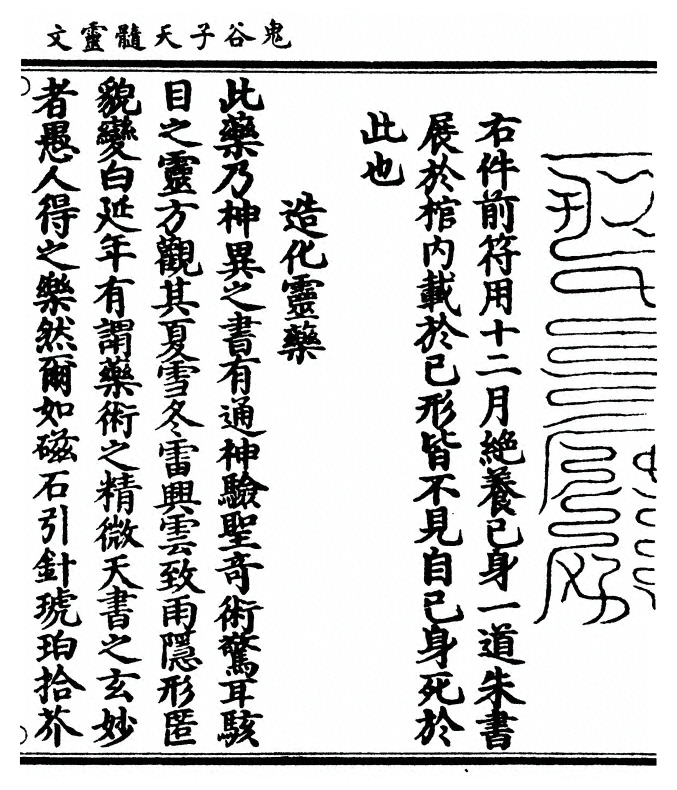 鬼谷子天髓靈文
右件前符用十二月絶養已身一道朱書
展於棺内載於已形皆不見自已身死於
此也
造化靈藥
此藥乃神異之書有通神驗聖奇術驚耳駭
目之靈方觀其夏雪冬雷興雲致雨隱形匿
貌變白延年有謂藥術之精微天書之玄妙
者愚人得之樂然爾如磁石引針琥珀拾芥